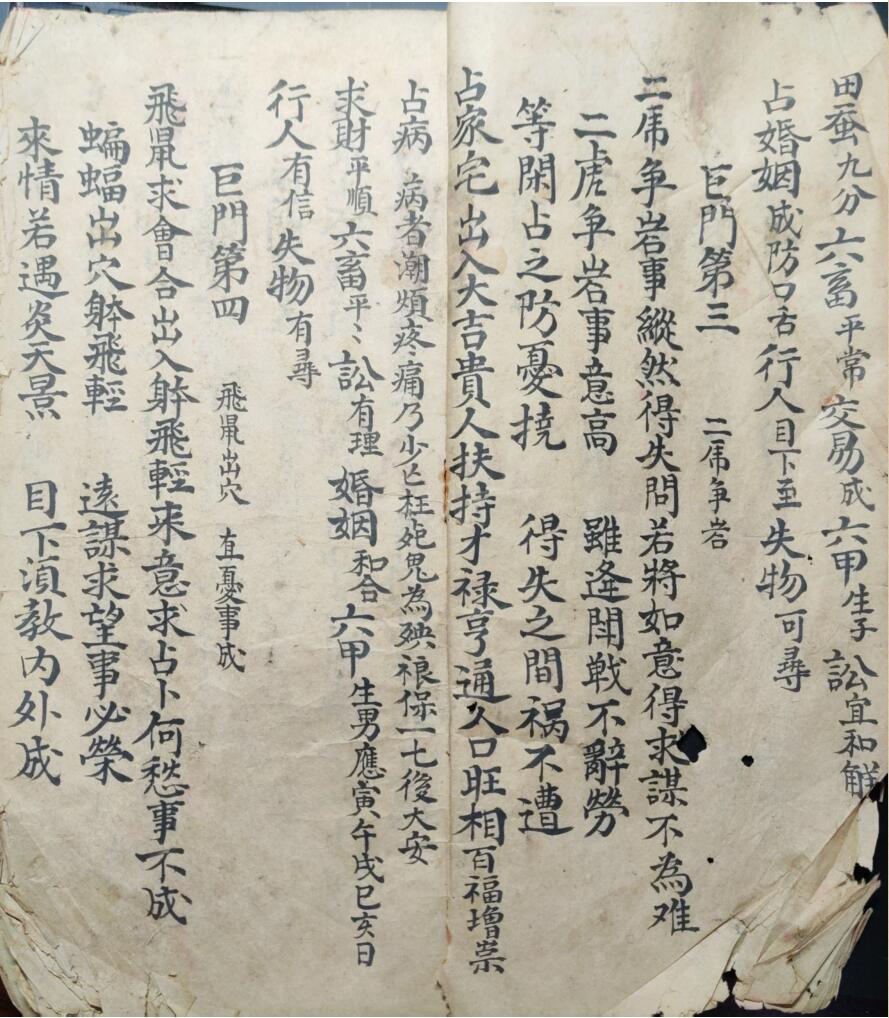 田蚕九分六畜平常交易成六甲生子訟宜和觧
占婚姻成防口舌行人目下至失物可尋
巨門第三 二虎争岩
二虎争岩事縱然得失問若將如意得求謀不為难
二虎争岩事意高 雖逄閗戰不辭勞
等閑占之防憂撓 得失之間禍不遭
占家宅出入大吉貴人扶持才禄亨通人口旺相百福增崇
占病病者潮煩疼痛乃少亡枉死鬼為殃禳保一七後大安
求財平順六畜平〻訟有理婚姻和合六甲生男應寅午戌巳亥日
行人有信失物有尋
巨門第四 飛鼠出穴 直憂事成
飛鼠求會合出入躰飛輕来意求占卜何愁事不成
蝙蝠出穴躰飛輕 遠謀求望事必榮
來情若遇炎天景 目下湏教内外成